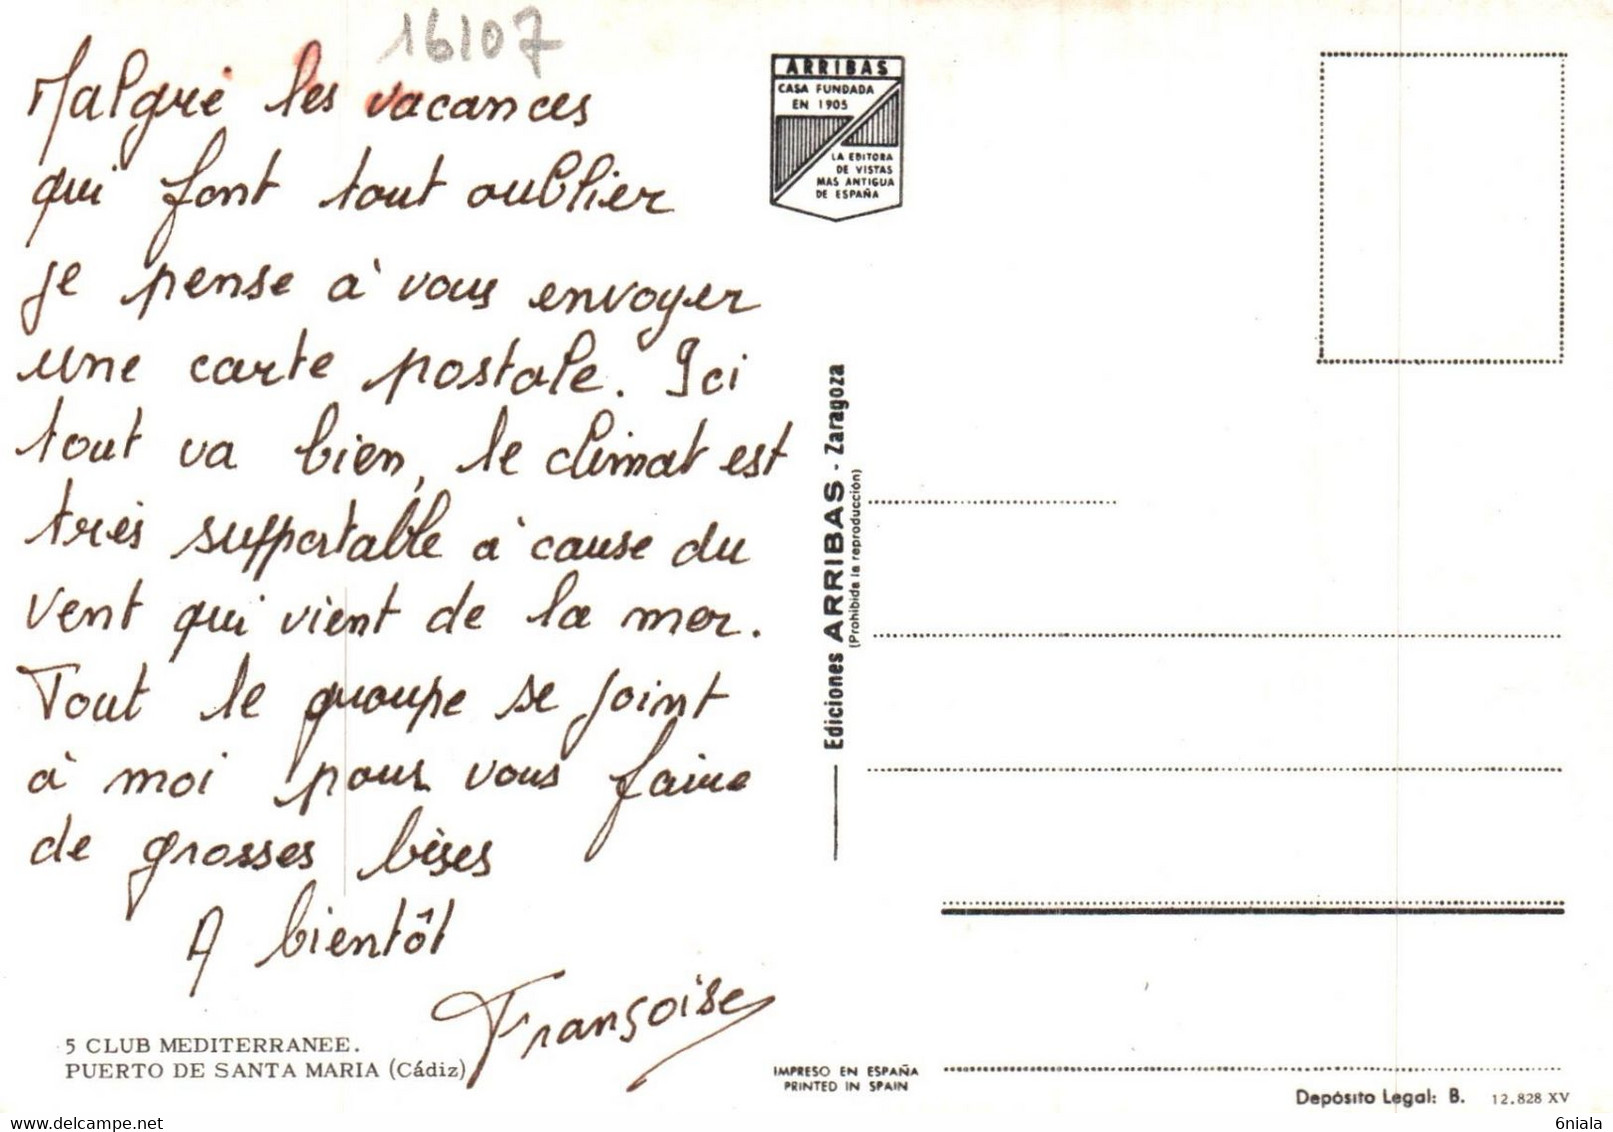 16/07
Malgré les vacances
qui font tout oublier
je pense à vous envoyer
une carte postale. Ici
tout va bien, le climat est
très supportable à cause du
vent qui vient de la mer.
Tout le groupe se joint
à moi pour vous faire
de grosses bises
A bientôt
Françoise
5 CLUB MEDITERRANEE.
PUERTO DE SANTA MARIA (Cádiz)
ARRIBAS
CASA FUNDADA
EN 1905
LA EDITORA
DE VISTAS
MAS ANTIGUA
DE ESPAÑA
Ediciones ARRIBAS - Zaragoza
(Prohibida la reproducción)
IMPRESO EN ESPAÑA
PRINTED IN SPAIN
Depósito Legal: B. 12.828 XV
6niala